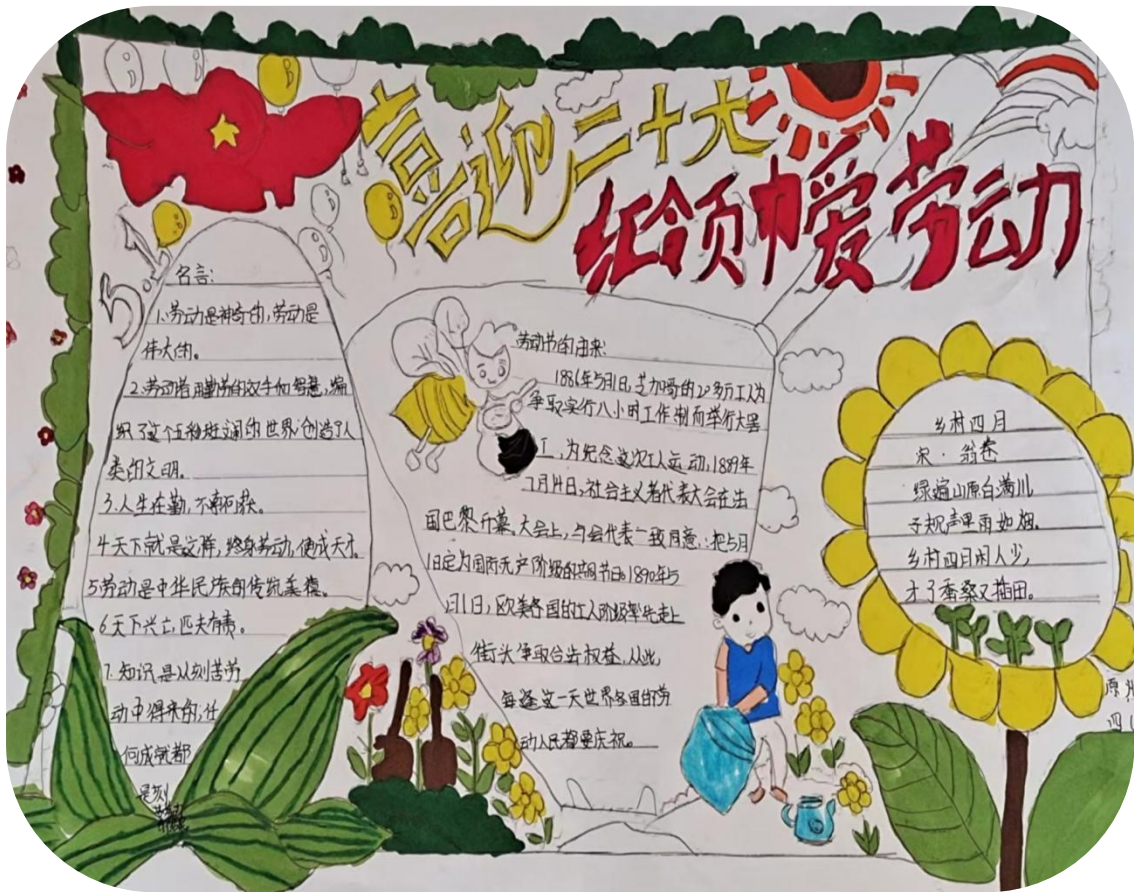 喜迎二十大
红领巾爱劳动
5.1
名言:
1.劳动是神奇的,劳动是
伟大的。
2.劳动者用勤劳的双手和智慧,编
织了这个五彩斑斓的世界,创造了人
类的文明。
3.人生在勤,不索何获。
4天下就是这样,终身劳动,便成天才。
5劳动是中华民族的传统美德。
6.天下兴亡,匹夫有责。
7.知识是从刻苦劳
动中得来的,任
何成就都
是刻
劳动节的由来:
1886年5月1日,芝加哥的20多万工人为
争取实行八小时工作制而举行大罢
工,为纪念这次工人运动,1889年
7月14日,社会主义者代表大会在法
国巴黎开幕。大会上,与会代表一致同意:把5月
1日定为国际无产阶级的节日。1890年5
月1日,欧美各国的工人阶级率先走上
街头争取合法权益,从此,
每逢这一天世界各国的劳
动人民都要庆祝。
乡村四月
宋·翁卷
绿遍山原白满川
子规声里雨如烟。
乡村四月闲人少,
才了蚕桑又插田。